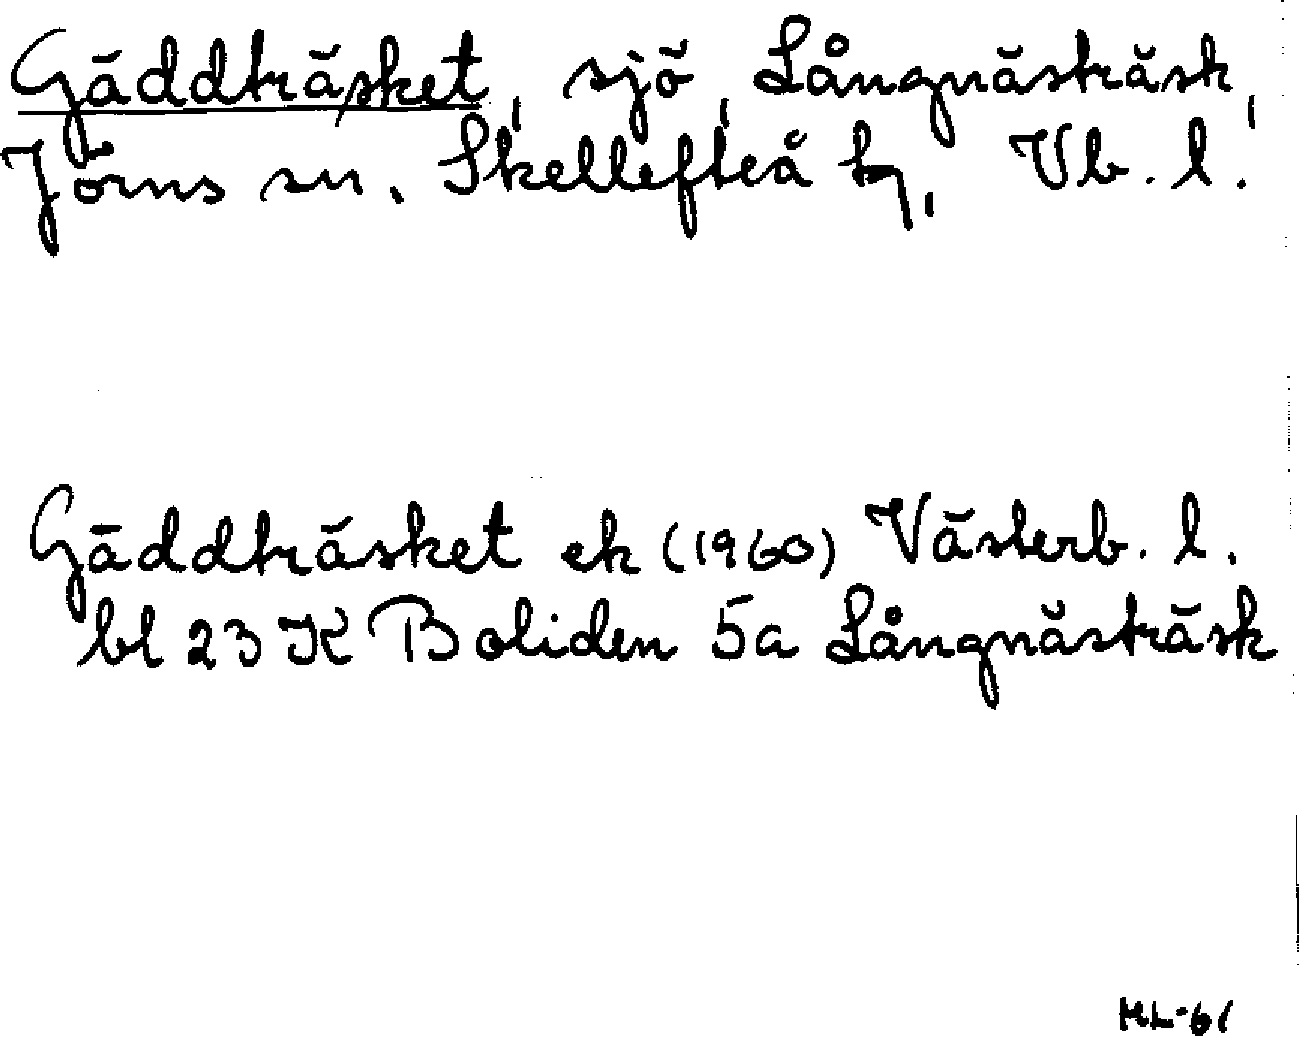 Gäddträsket, sjö, Långnästräsk,
Jörns sn. Skellefteå tg, Vb. l.
Gäddträsket ek (1960) Västerb. l.
bl 23 K Boliden 5a Långnästräsk
ML-61